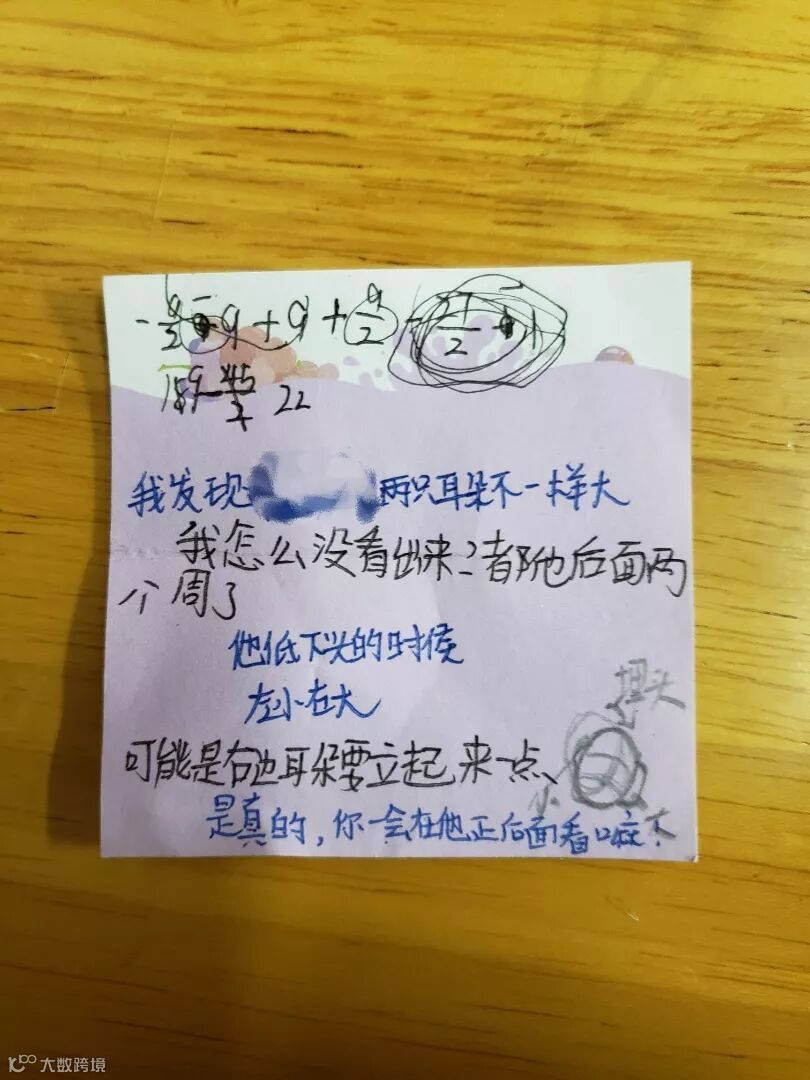 -9/2 - 9 + 9 + 9/2 - 27/2
189 - 45/2 22
我发现 两只耳朵不一样大
我怎么没看出来?都他后面两
个周了
他低下头的时候
左小右大
埋头
可能是右边耳朵要立起来一点、
小 大
是真的,你一会在他正后面看嘛!
大数跨境